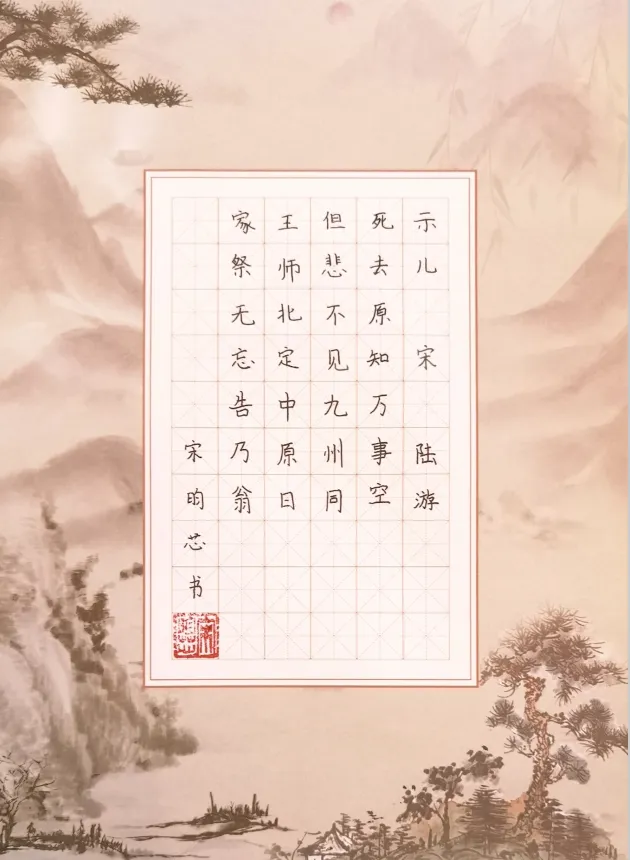 示儿 宋 陆游
死去原知万事空
但悲不见九州同
王师北定中原日
家祭无忘告乃翁
宋昀芯书